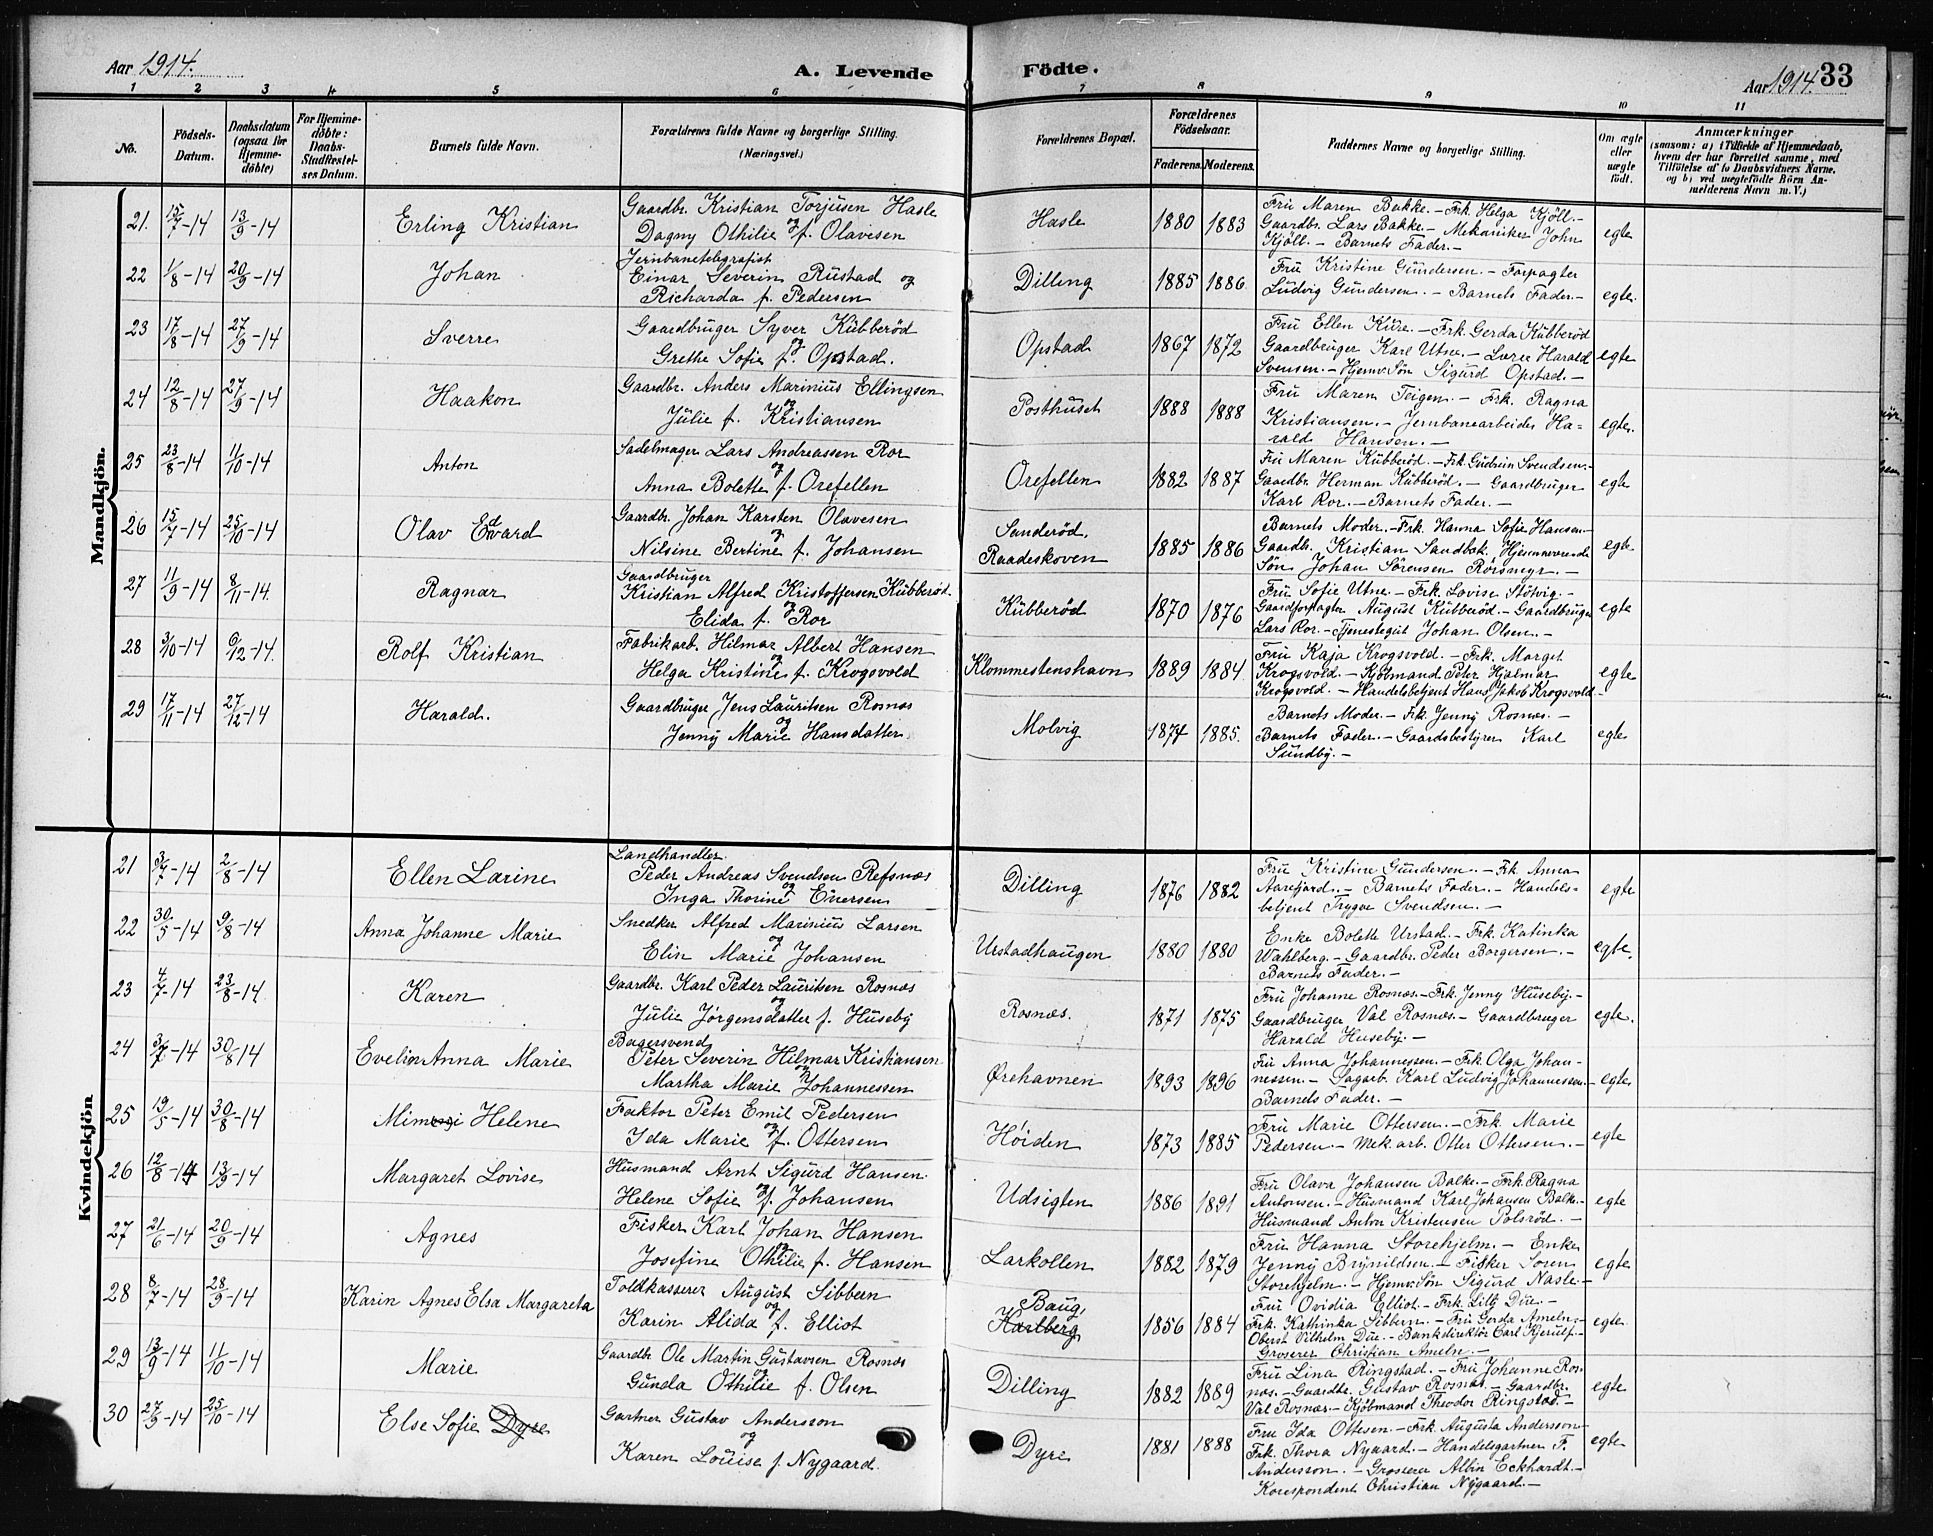 Aar 1914.
A. Levende Födte.
Aar 1914. 33
1 2 3 4 5 6 7 8 9 10 11
No.
Födsels-Datum.
Daabsdatum (ogsaa for Hjemme-döbte)
For Hjemme-döbte: Daabs-Stadfæstel-ses Datum.
Barnets fulde Navn.
Forældrenes fulde Navne og borgerlige Stilling.
(Næringsvei.)
Forældrenes Bopæl.
Forældrenes Födselsaar.
Faderens. Moderens.
Faddernes Navne og borgerlige Stilling.
Om ægte eller uægte födt.
Anmærkninger
(saasom: a) i Tilfælde af Hjemmedaab, hvem der har forrettet samme, med Tilföielse af to Daabsvidners Navne, og b) ved uægtefödte Börn An-melderens Navn m. V.)
Mandkjön.
21. 15/7-14 13/9-14 Erling Kristian
Gaardbr. Kristian Torjusen Hasle
og
Dagny Othilie f. Olavesen
Hasle 1880 1883
Fru Maren Bakke. - Frk. Helga Kjöll. -
Gaardbr. Lars Bakke. - Mekaniker John
Kjöll. - Barnets Fader. -
egte
22 1/8-14 20/9-14 Johan
Jernbanetelegrafist
Einar Severin Rustad og
Richarda f. Pedersen
Dilling 1885 1886
Fru Kristine Gundersen. - Forpagter
Ludvig Gundersen. - Barnets Fader. -
egte.
23 17/8-14 27/9-14 Sverre
Gaardbruger Syver Kubberöd
og
Grethe Sofie f. Opstad.
Opstad 1867 1872
Fru Ellen Kure. - Frk. Gerda Kubberöd
Gaardbruger Karl Utne. - Lærer Harald
Svensen. - Hjemv. Sön Sigurd Opstad. -
egte
24 12/8-14 27/9-14 Haakon
Gaardbr. Anders Marinius Ellingsen
og
Julie f. Kristiansen
Posthuset 1888 1888
Fru Maren Teigen. - Frk. Ragna
Kristiansen. - Jernbanearbeider Ha-
rald Hansen. -
egte.
25 23/8-14 11/10-14 Anton
Sadelmager Lars Andreassen Ror
og
Anna Bolette f. Orefellen
Orefellen 1882 1887
Fru Maren Kubberöd. - Frk. Gudrun Svendsen. -
Gaardbr. Herman Kubberöd. - Gaardbruger
Karl Ror. - Barnets Fader. -
egte
26 15/7-14 25/10-14 Olav Edvard
Gaardbr. Johan Karsten Olavesen
og
Nilsine Bertine f. Johansen
Sanderöd,
Raadeskoven 1885 1886
Barnets Moder. - Frk. Hanna Sofie Hansen -
Gaardb. Kristian Sandbæk. Hjemmeværende
Sön Johan Sörensen Rörsmyr. -
egte
27 11/9-14 8/11-14. Ragnar
Gaardbruger
Kristian Alfred Kristoffersen Kubberöd.
og
Elida f. Ror
Kubberöd 1870 1876
Fru Sofie Utne. - Frk. Lovise Stötvig. -
Gaardforpagter August Kubberöd. - Gaardbruger
Lars Ror. - Tjenestegut Johan Olsen. -
egte
28 3/10-14 6/12-14. Rolf Kristian
Fabrikarb. Hilmar Albert Hansen
og
Helga Kristine f. Krogsvold
Klommestenshavn 1889 1884.
Fru Kaja Krogsvold. - Frk. Marget
Krogsvold. - Kjöbmand Peter Hjalmar
Krogsvold. - Handelsbetjent Hans Jakob Krogsvold -
egte
29 17/11-14 27/12-14 Harald.
Gaardbruger Jens Lauritsen Rosnæs
og
Jenny Marie Hansdatter
Molvig 1874 1885.
Barnets Moder. - Frk. Jenny Rosnæs. -
Barnets Fader. - Gaardsbestyrer Karl
Sundby. -
egte
Kvindekjön
21 3/7-14 2/8-14 Ellen Larine
Landhandler
Peder Andreas Svendsen Refsnæs
og
Inga Thorine Eversen
Dilling 1876 1882
Fru Kristine Gundersen. - Frk. Anna
Aarefjord. - Barnets Fader. - Handels-
betjent Trygve Svendsen. -
egte
22 30/5-14 9/8-14 Anna Johanne Marie
Snedker Alfred Marinius Larsen
og
Elin Marie Johansen
Urstadhaugen 1880 1880
Enke Bolette Urstad. - Frk. Katinka
Wahlberg. - Gaardbr. Peder Borgersen. -
Barnets Fader. -
egte.
23 4/7-14 23/8-14 Karen
Gaardbr. Karl Peder Lauritsen Rosnæs
og
Julie Jörgensdatter f. Huseby
Rosnæs. 1871 1875
Fru Johanne Rosnæs. - Frk. Jenny Huseby. -
Gaardbruger Val Rosnæs. - Gaardbruger
Harald Huseby. -
egte.
24 3/7-14 30/8-14 Evelin Anna Marie
Bagersvend
Peter Severin Hilmar Kristiansen
og
Martha Marie Johannessen
Ørehavnen 1893 1896
Fru Anna Johannessen. - Frk. Olga Johan-
nessen. - Sagarb. Karl Ludvig Johannessen. -
Barnets Fader. -
egte
25 19/5-14 30/8-14 Mimmi Helene
Faktor Peter Emil Pedersen
og
Ida Marie f. Ottersen
Höiden 1873 1885
Fru Marie Ottersen. - Frk. Marie
Pedersen. - Mek. arb. Otter Ottersen. -
egte
26 12/8-14 13/9-14 Margaret Lovise
Husmand Arnt Sigurd Hansen
og
Helene Sofie f. Johansen
Udsigten 1886 1891
Fru Olava Johansen Balke. - Frk. Ragna
Antonsen. - Husmand Karl Johansen Balke. -
Husmand Anton Kristensen Polsröd. -
egte
27 21/6-14 20/9-14 Agnes
Fisker Karl Johan Hansen
og
Josefine Othilie f. Hansen
Larkollen 1882 1879
Fru Hanna Storehjelm. - Enke
Jenny Brynildsen. - Fisker Sören
Storehjelm. - Hjemv. Sön Sigurd Nasle. -
egte
28 8/7-14 28/9-14 Karin Agnes Elsa Margareta
Toldkasserer August Sibbern
og
Karin Alida f. Elliot
Baug,
Karlberg 1856 1884
Fru Ovidia Elliot. - Frk. Lilly Due. -
Frk. Kathinka Sibbern. - Fru Gerda Ameln. -
Oberst Vilhelm Due. - Bankdirektör Carl Kjerulf. -
Grosserer Christian Ameln. -
egte
29 13/9-14 11/10-14 Marie
Gaardbr Ole Martin Gustavsen Rosnæs
og
Gunda Othilie f. Olsen
Dilling 1882 1889
Fru Lina Ringstad. - Fru Johanne Ros-
næs. - Gaardbr. Gustav Rosnæs. - Gaardbr.
Val Rosnæs. - Kjöbmand Theodor Ringstad. -
egte
30 27/9-14 25/10-14 Else Sofie Dyre
Gartner Gustav Andersson
og
Karen Louise f. Nygaard.
Dyre 1881 1888
Fru Ida Ottesen. - Frk. Augusta Andersson -
Frk. Thora Nygaard. - Handelsgartner F.
Andersson. - Grosserer Albin Eckhardt. -
Korespondent Christian Nygaard. -
egte